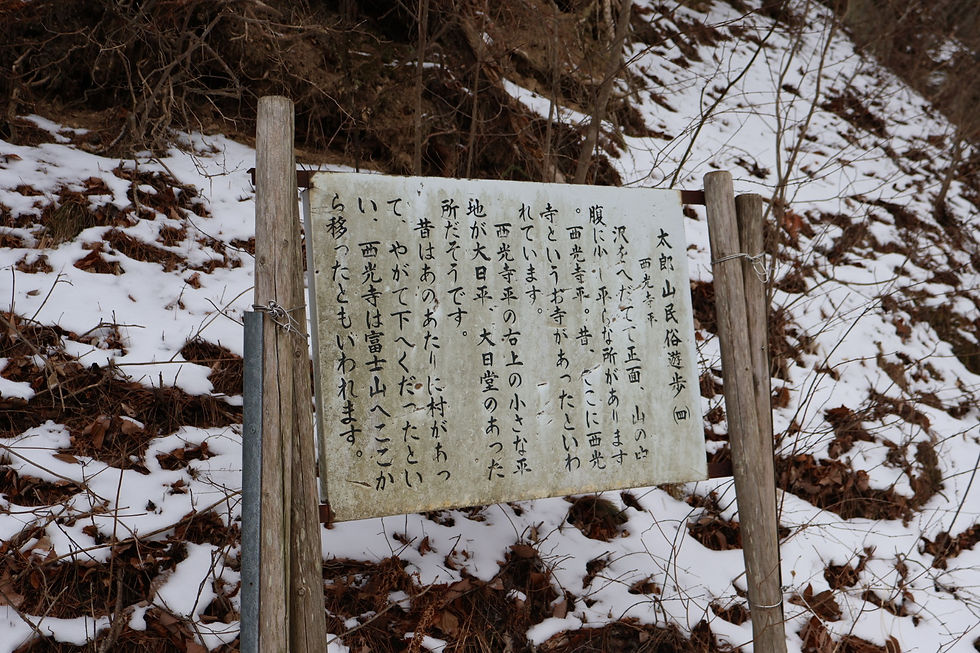 太郎山民俗遊歩(四)
西光寺平
沢をへだてて正面 山の中
腹に少し平らな所があります
。西光寺平。昔、ここに西光
寺というお寺があったといわ
れています。
西光寺平の右上の小さな平
地が大日平、大日堂のあった
所だそうです。
昔はあのあたりに村があっ
て、やがて下へくだったとい
い、西光寺は富士山へここか
ら移ったともいわれます。